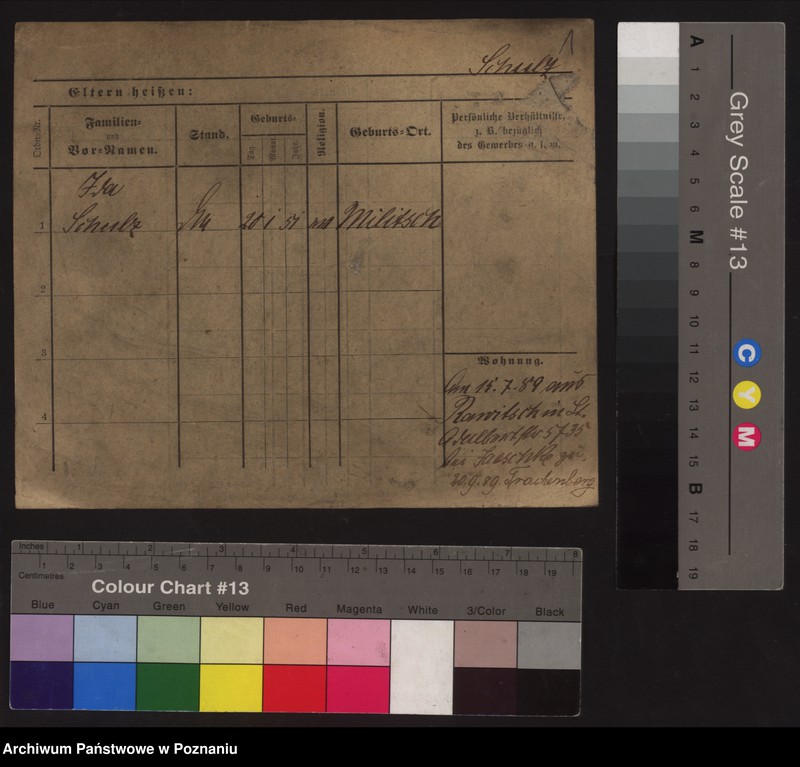 Schulz
Eltern heißen:
Ordn.-Nr.
Familien-
und
Vor-Namen.
Stand.
Geburts-
Tag. Monat. Jahr.
Religion.
Geburts-Ort.
Persönliche Verhältnisse,
z. B. bezüglich
des Gewerbes u. s. w.
1
Ida
Schulz
20 1 51
Militsch
2
3
4
Wohnung.
Am 15.7.89 aus
Rawitsch in St.
bei Jaeschke zu.
20.9.89. Trachenberg
A 1 2 3 4 5 6 M 8 9 10 11 12 13 14 15 B 17 18 19
Grey Scale #13
C Y M
Inches 1 2 3 4 5 6 7 8
Centimetres 1 2 3 4 5 6 7 8 9 10 11 12 13 14 15 16 17 18 19
Colour Chart #13
Blue Cyan Green Yellow Red Magenta White 3/Color Black
Archiwum Państwowe w Poznaniu